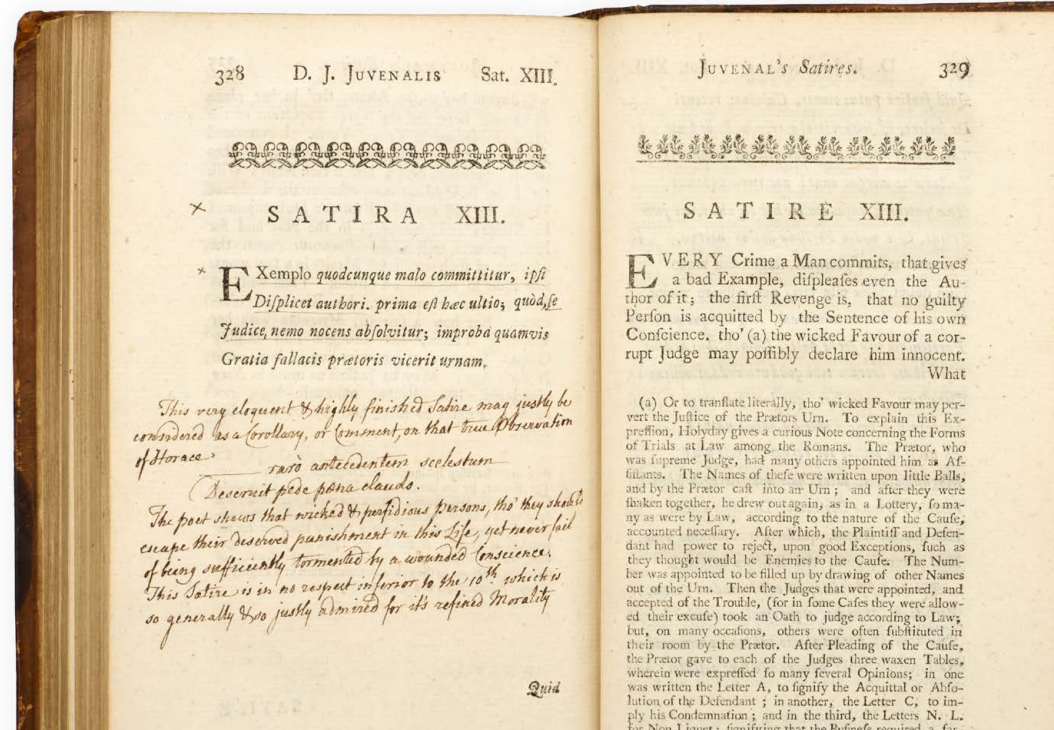 328 D. J. JUVENALIS Sat. XIII.
SATIRA XIII.
EXemplo quodcunque malo committitur, ipſi
Diſplicet authori. prima eſt hæc ultio; quòd, ſe
Judice, nemo nocens abſolvitur; improba quamvis
Gratia fallacis prætoris vicerit urnam.
This very eloquent & highly finished Satire may justly be
considered as a Corollary, or Comment, on that true Observation
of Horace
raro antecedentem scelestum
Deseruit pede pœna claudo.
The poet shews that wicked & perfidious Persons, tho' they should
escape their deserved punishment in this Life, yet never fail
of being sufficiently tormented by a wounded Conscience.
This Satire is in no respect inferior to the 10th which is
so generally & so justly admired for it's refined Morality
Quid
JUVENAL's Satires. 329
SATIRE XIII.
EVERY Crime a Man commits, that gives
a bad Example, diſpleaſes even the Au-
thor of it; the firſt Revenge is, that no guilty
Perſon is acquitted by the Sentence of his own
Conſcience. tho' (a) the wicked Favour of a cor-
rupt Judge may poſſibly declare him innocent.
What
(a) Or to tranſlate literally, tho' wicked Favour may per-
vert the Juſtice of the Prætors Urn. To explain this Ex-
preſſion, Holyday gives a curious Note concerning the Forms
of Trials at Law among the Romans. The Prætor, who
was ſupreme Judge, had many others appointed him as Aſ-
ſiſtants. The Names of theſe were written upon little Balls,
and by the Prætor caſt into an Urn; and after they were
ſhaken together, he drew out again, as in a Lottery, ſo ma-
ny as were by Law, according to the nature of the Cauſe,
accounted neceſſary. After which, the Plaintiff and Defen-
dant had power to reject, upon good Exceptions, ſuch as
they thought would be Enemies to the Cauſe. The Num-
ber was appointed to be filled up by drawing of other Names
out of the Urn. Then the Judges that were appointed, and
accepted of the Trouble, (for in ſome Caſes they were allow-
ed their excuſe) took an Oath to judge according to Law;
but, on many occaſions, others were often ſubſtituted in
their room by the Prætor. After Pleading of the Cauſe,
the Prætor gave to each of the Judges three waxen Tables,
wherein were expreſſed ſo many ſeveral Opinions; in one
was written the Letter A, to ſignify the Acquittal or Abſo-
lution of the Defendant; in another, the Letter C, to im-
ply his Condemnation; and in the third, the Letters N. L.
for Non Liquet; ſignifying that the Buſineſs required a far-